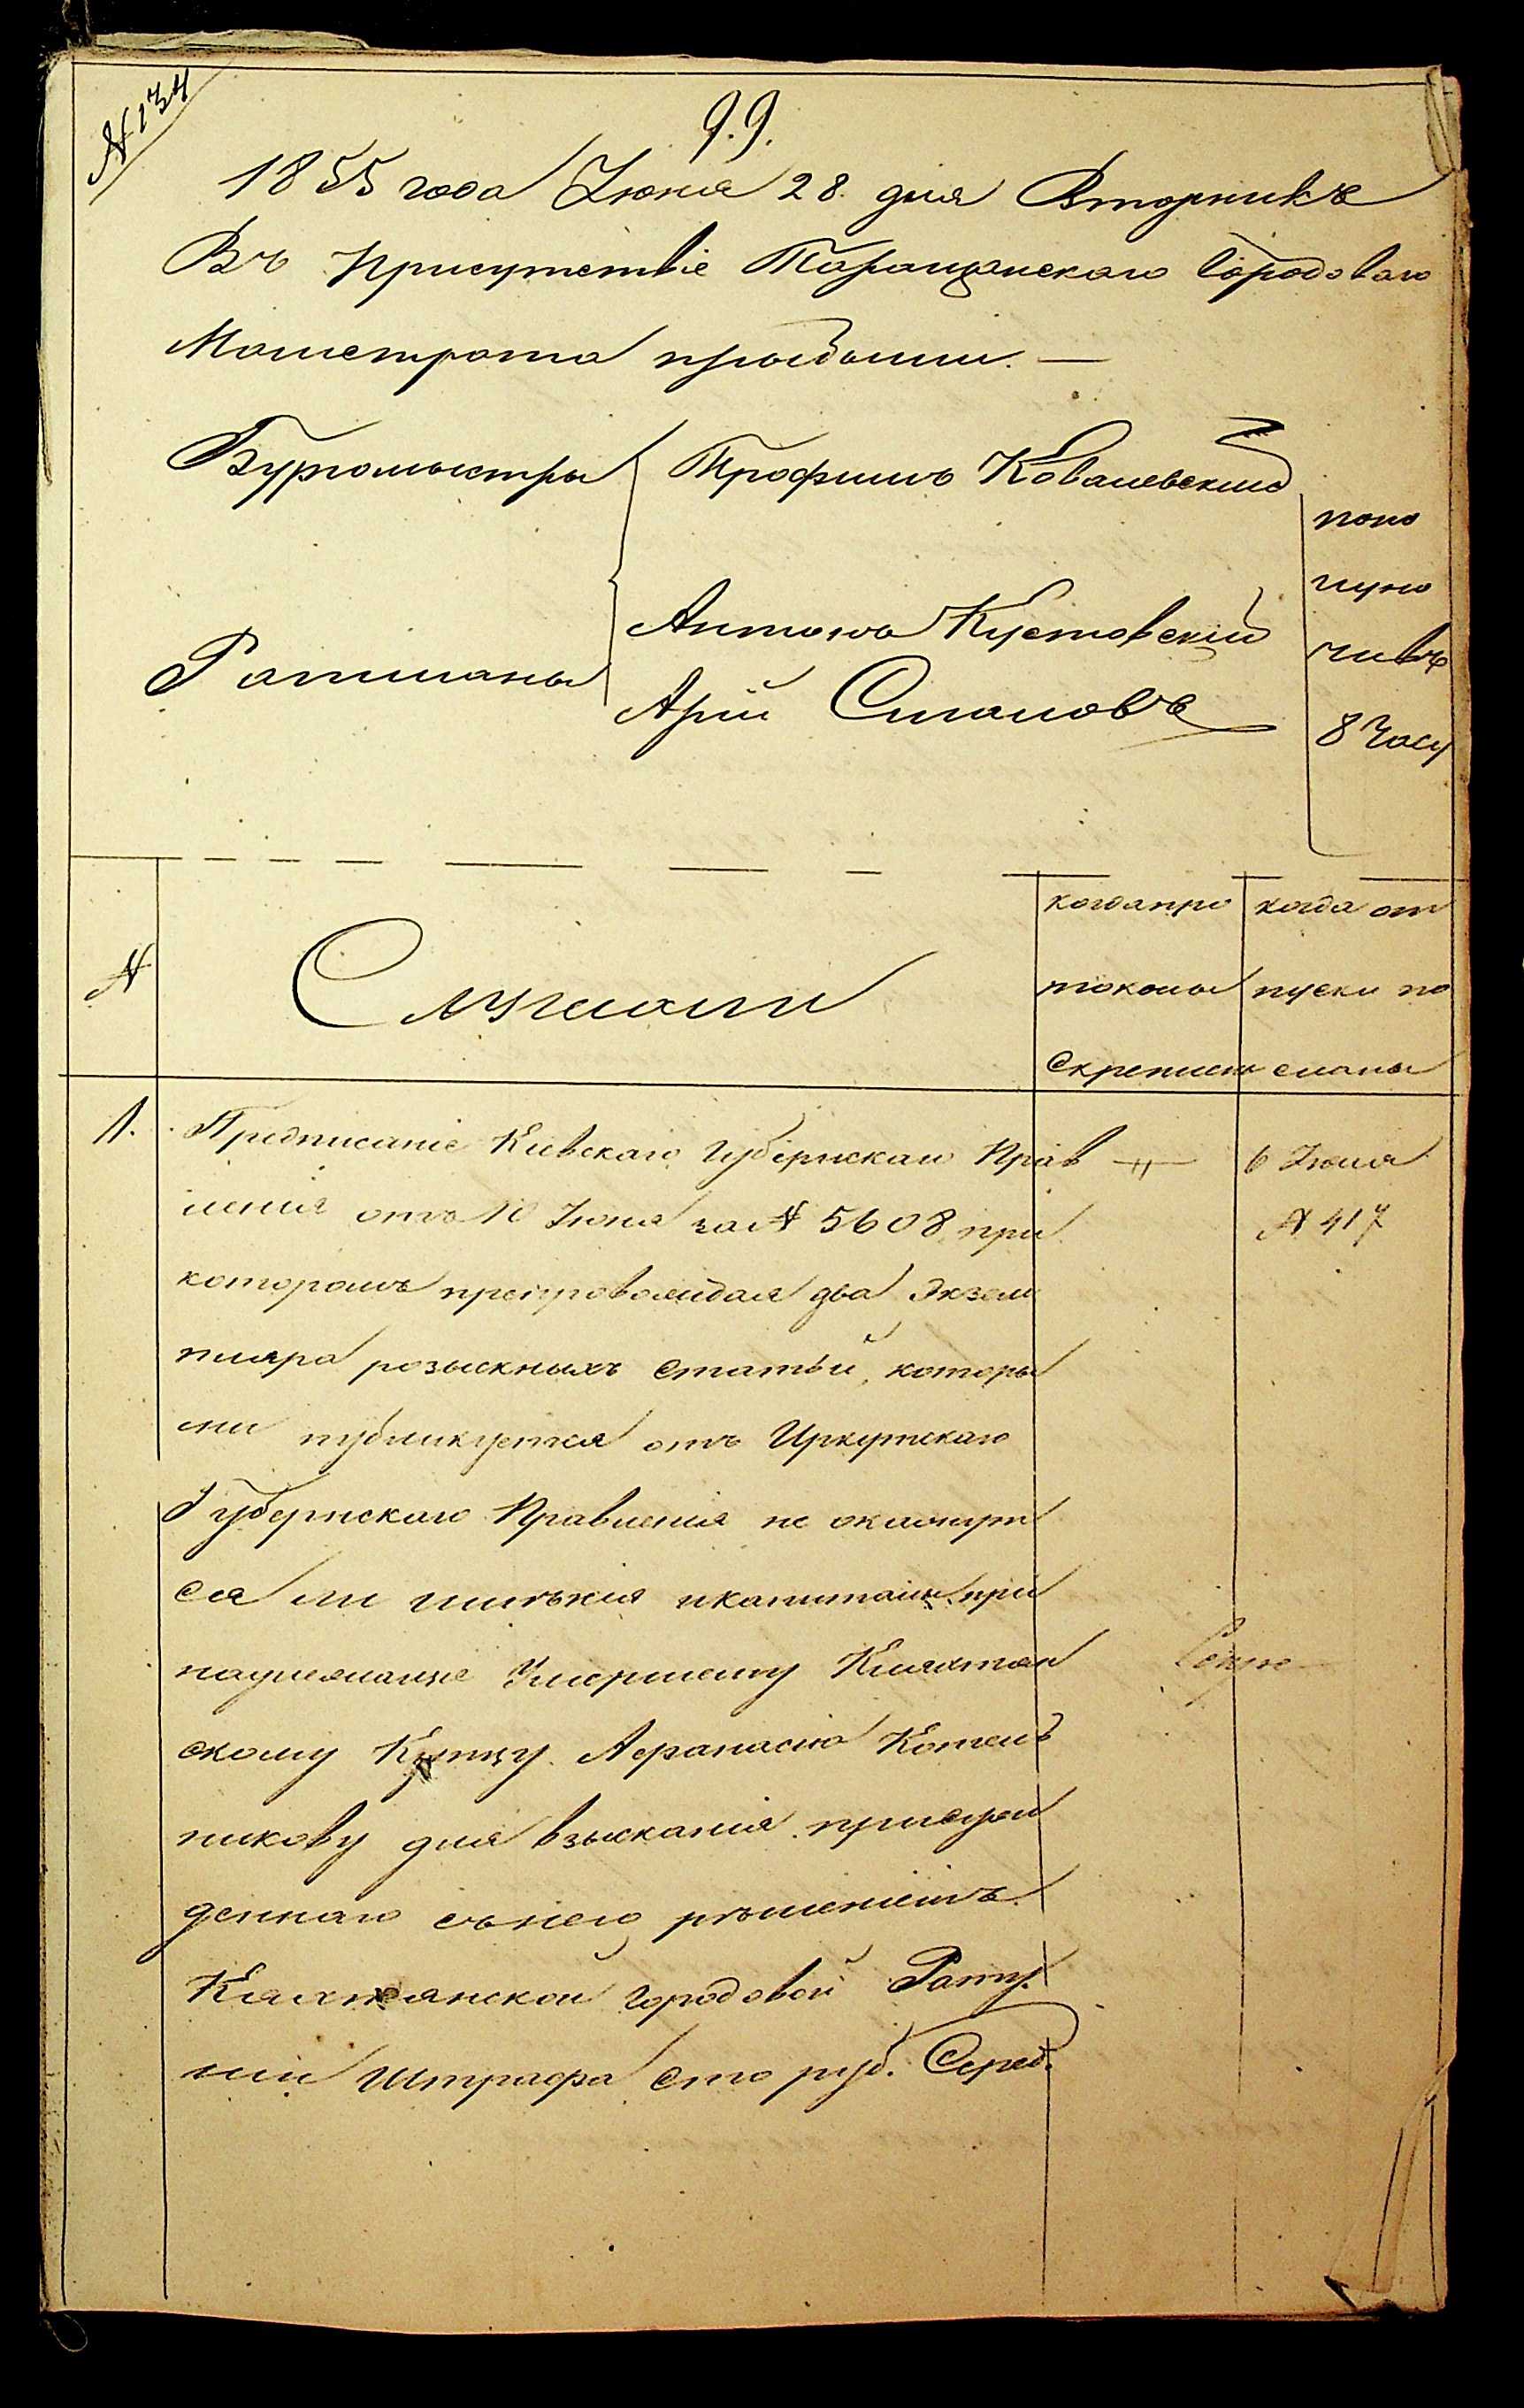 № 134
99.
1855 года Июня 28 дня Вторникъ
Въ присутствіе Таращанскаго Городоваго
Магистрата прибыли. —
Бургомистры Трофимъ Ковалевскій
попо
луно
Антонъ Кустовскій
Ратманы
чивъ
Арій Смаловъ
8 Часу
№
Слушали
когда про
токолы
скреплены
когда от
пуски по
сланы
1. Предписаніе Кіевскаго Губернскаго Прав
ленія отъ 10 Июня за № 5608 при
которомъ препровождая два Экзем
пляра розыскныхъ статьй, которы
ми публикуется отъ Иркутскаго
Губернскаго Правленія не окажут
ся ли имѣнія и капиталы при
надлежащіе Умершему Кяхтин
скому Купцу Афанасію Котель
никову для взысканія присуж
деннаго сънего рѣшеніемъ
Кяхтянской городовой Рату
ши Штрафа сто руб. Сереб.
6 Июля
№ 417